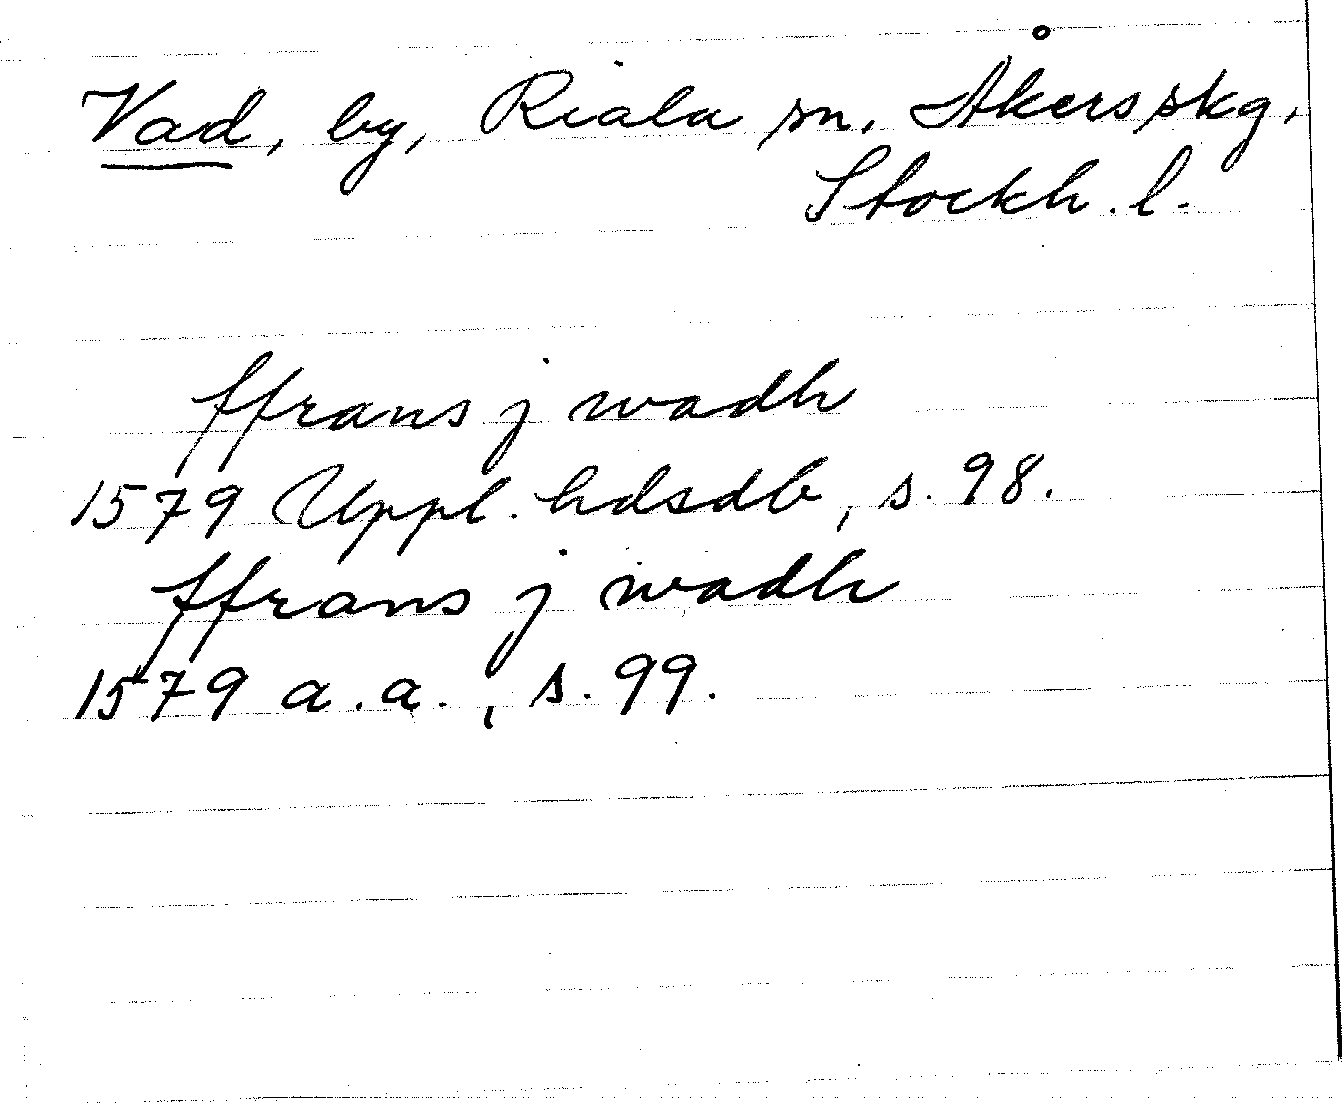 Vad, by, Riala sn, Åkers skg,
Stockh. l.
ffrans j wadh
1579 Uppl. hdsdb, s. 98.
ffrans j wadh
1579 a.a., s. 99.